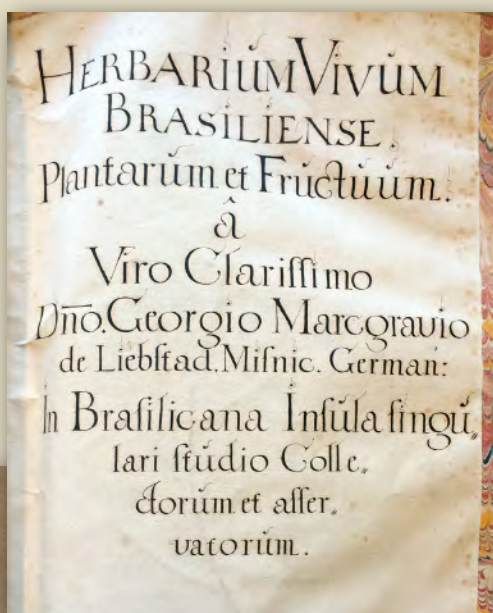 HERBARIŬM VIVŬM
BRASILIENSE.
Plantarŭm et Frŭctŭum.
â
Viro Clariſſimo
Dn̄o. Georgio Marcgravio
de Liebſtad. Miſnic. German:
In Braſilicana Inſŭla ſingŭ„
lari ſtŭdio Colle„
ctorŭm et aſſer„
vatorŭm.